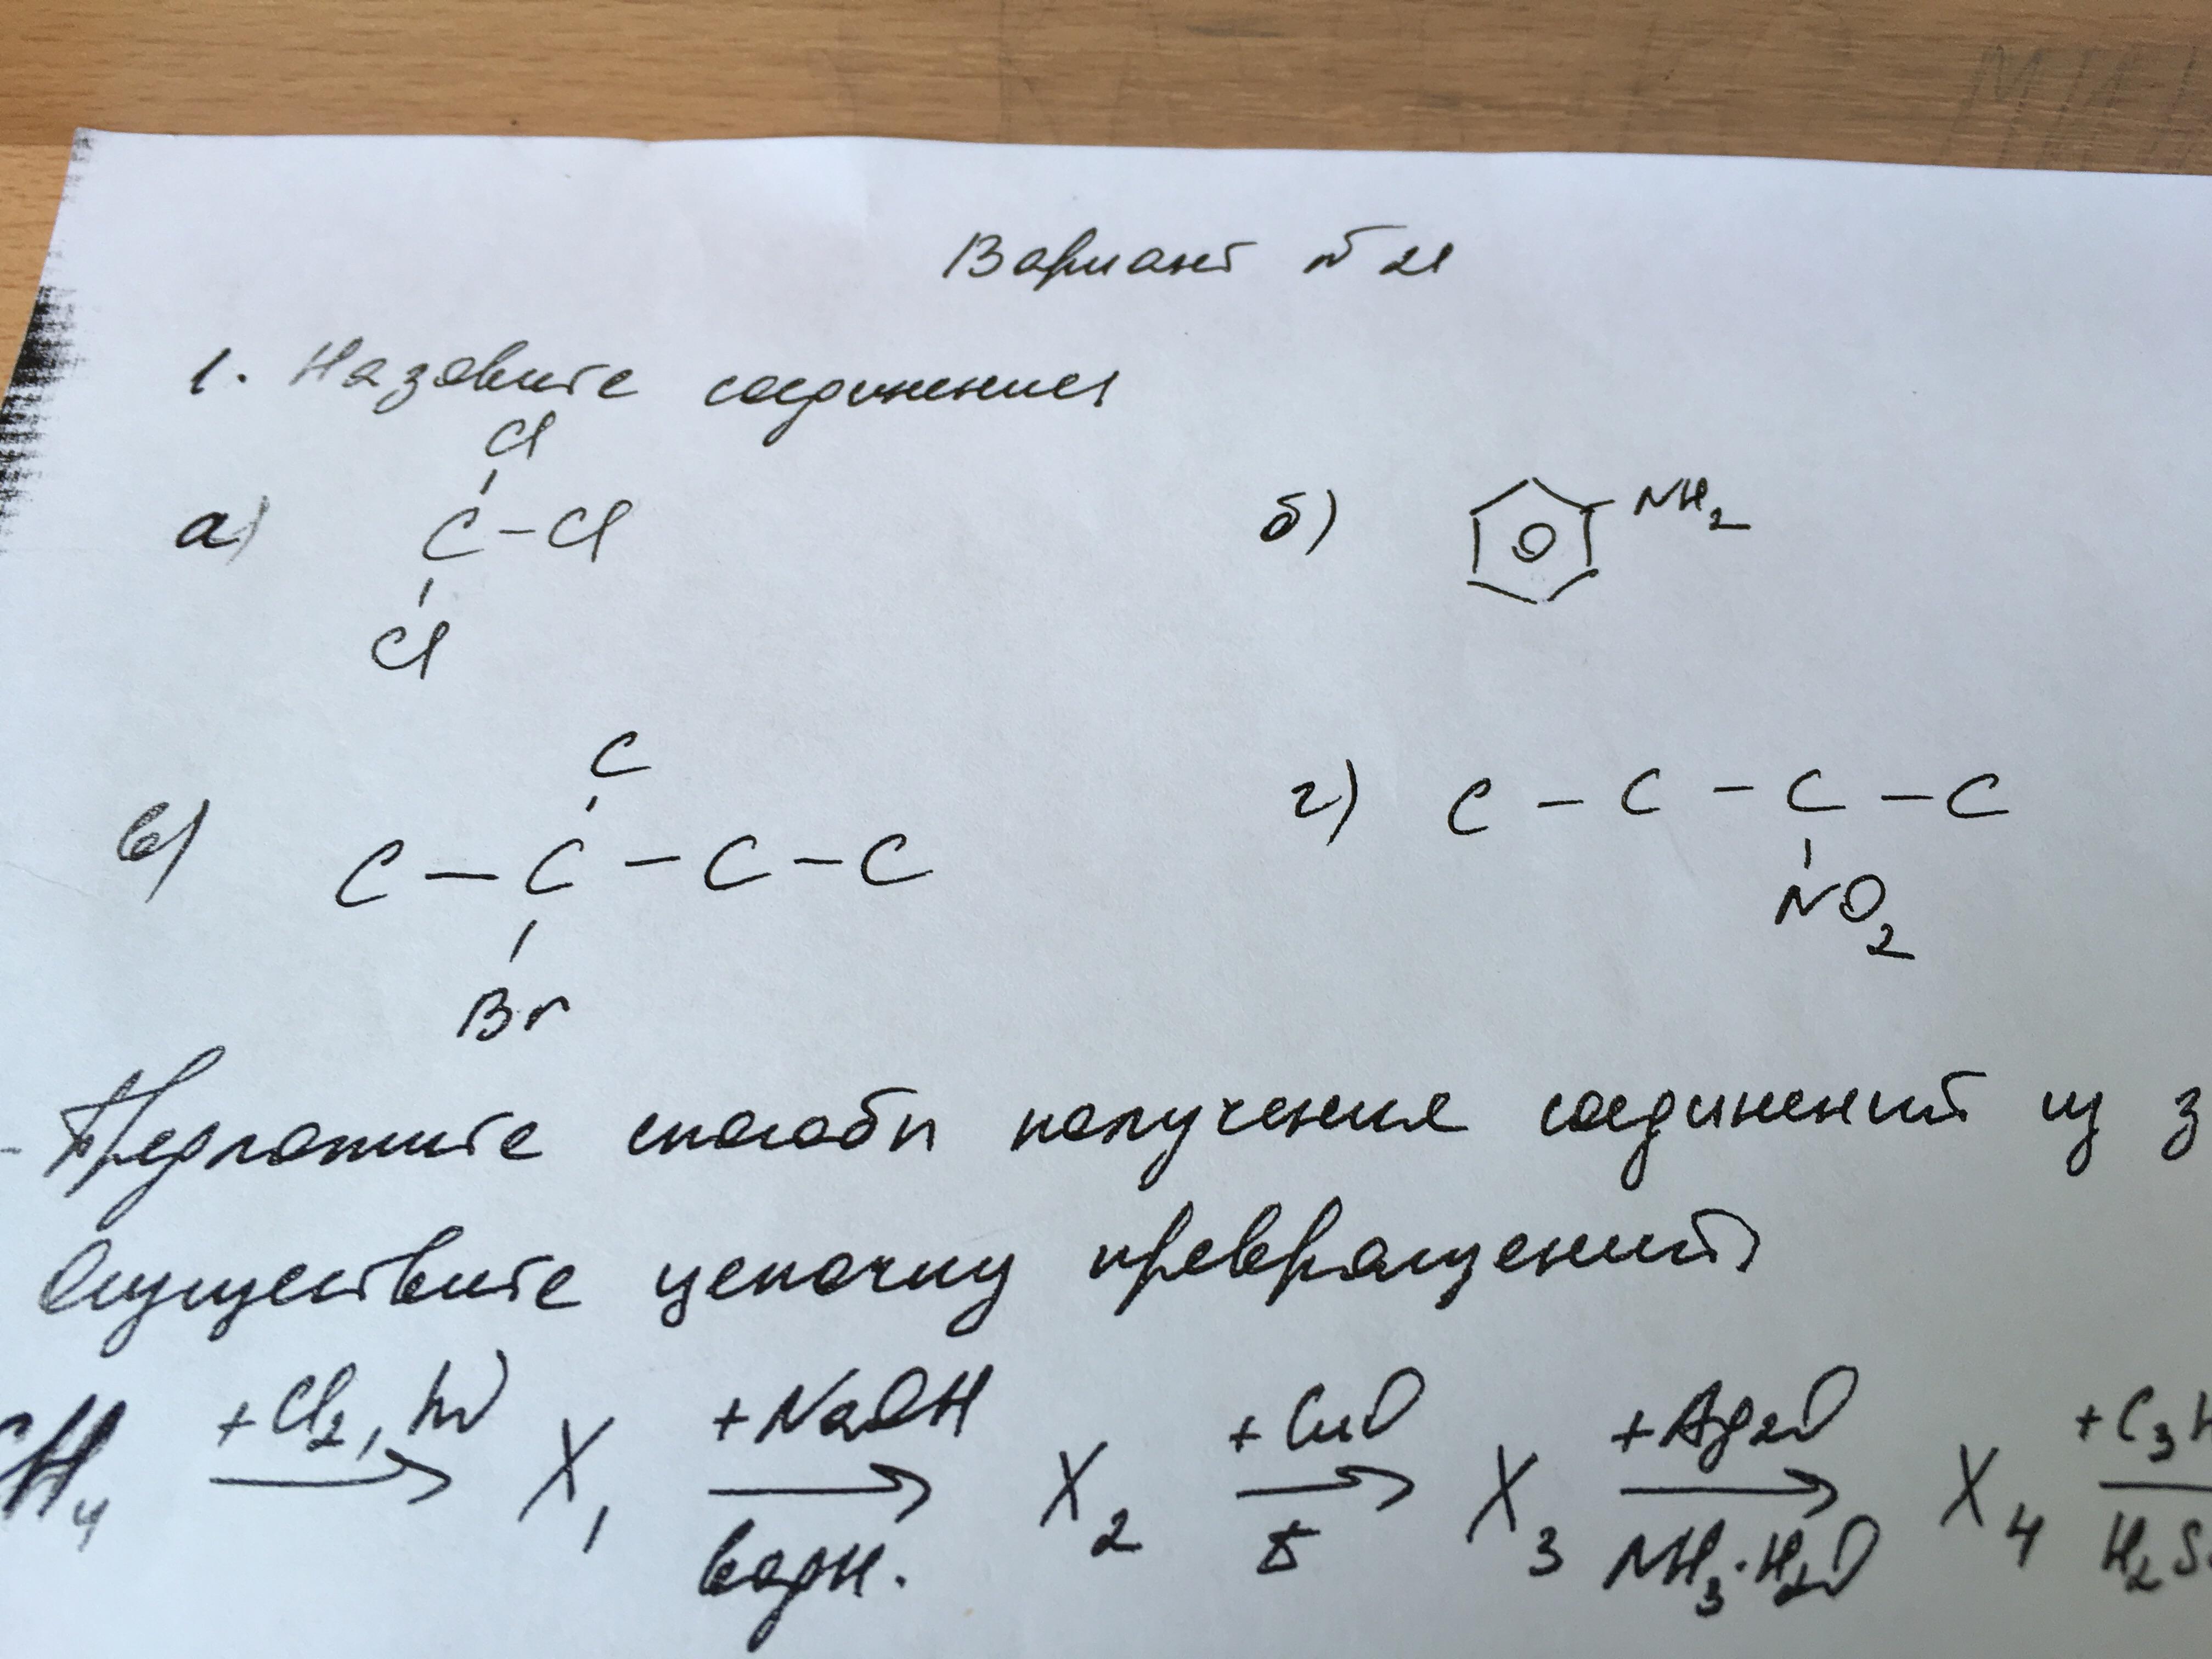 Вариант № 21
1. Назовите соединения
Cl
а) C - Cl
Cl
б) NH2
C
в) C - C - C - C
Br
г) C - C - C - C
NO2
Предложите способы получения соединений из з
Осуществите цепочку превращений
CH4 +Cl2, hν → X1 +NaOH → X2 +CuO → X3 +Ag2O → X4 +C3H
водн. t NH3·H2O H2S